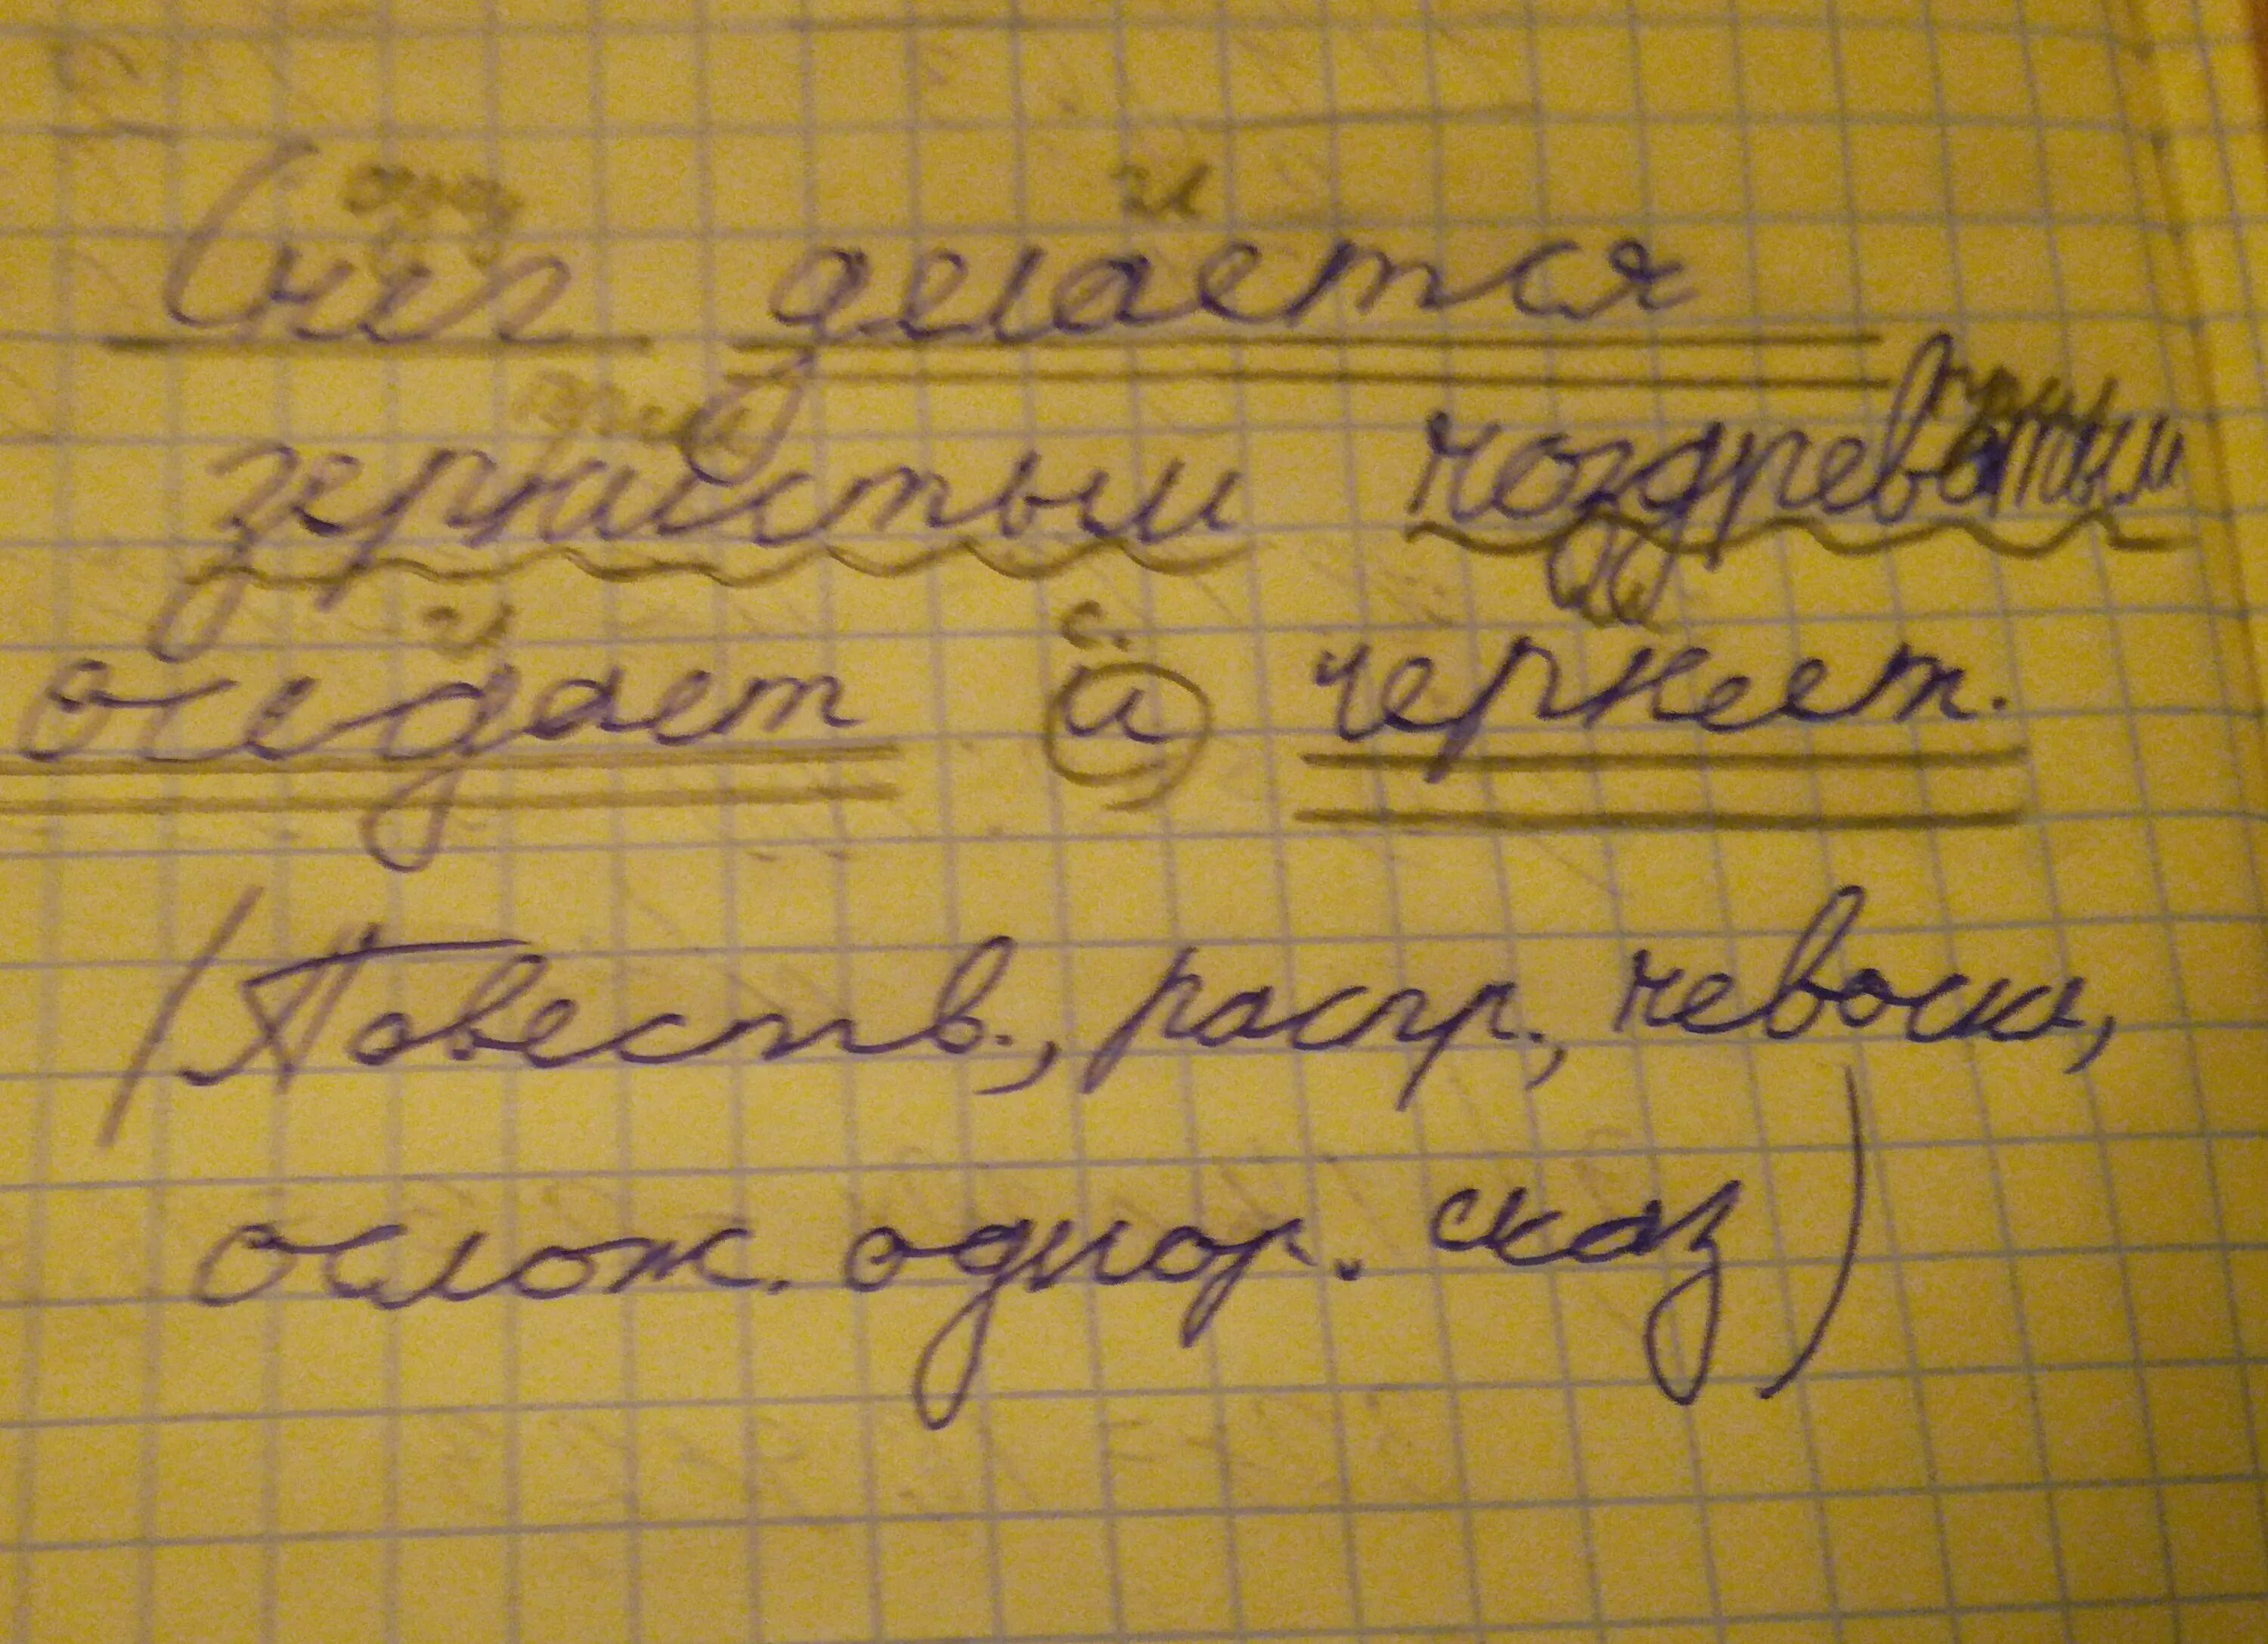 Снег делается
зернистым ноздреватым
оседает и чернеет.
(Повеств., распр., невоскл,
ослож. однор. сказ)